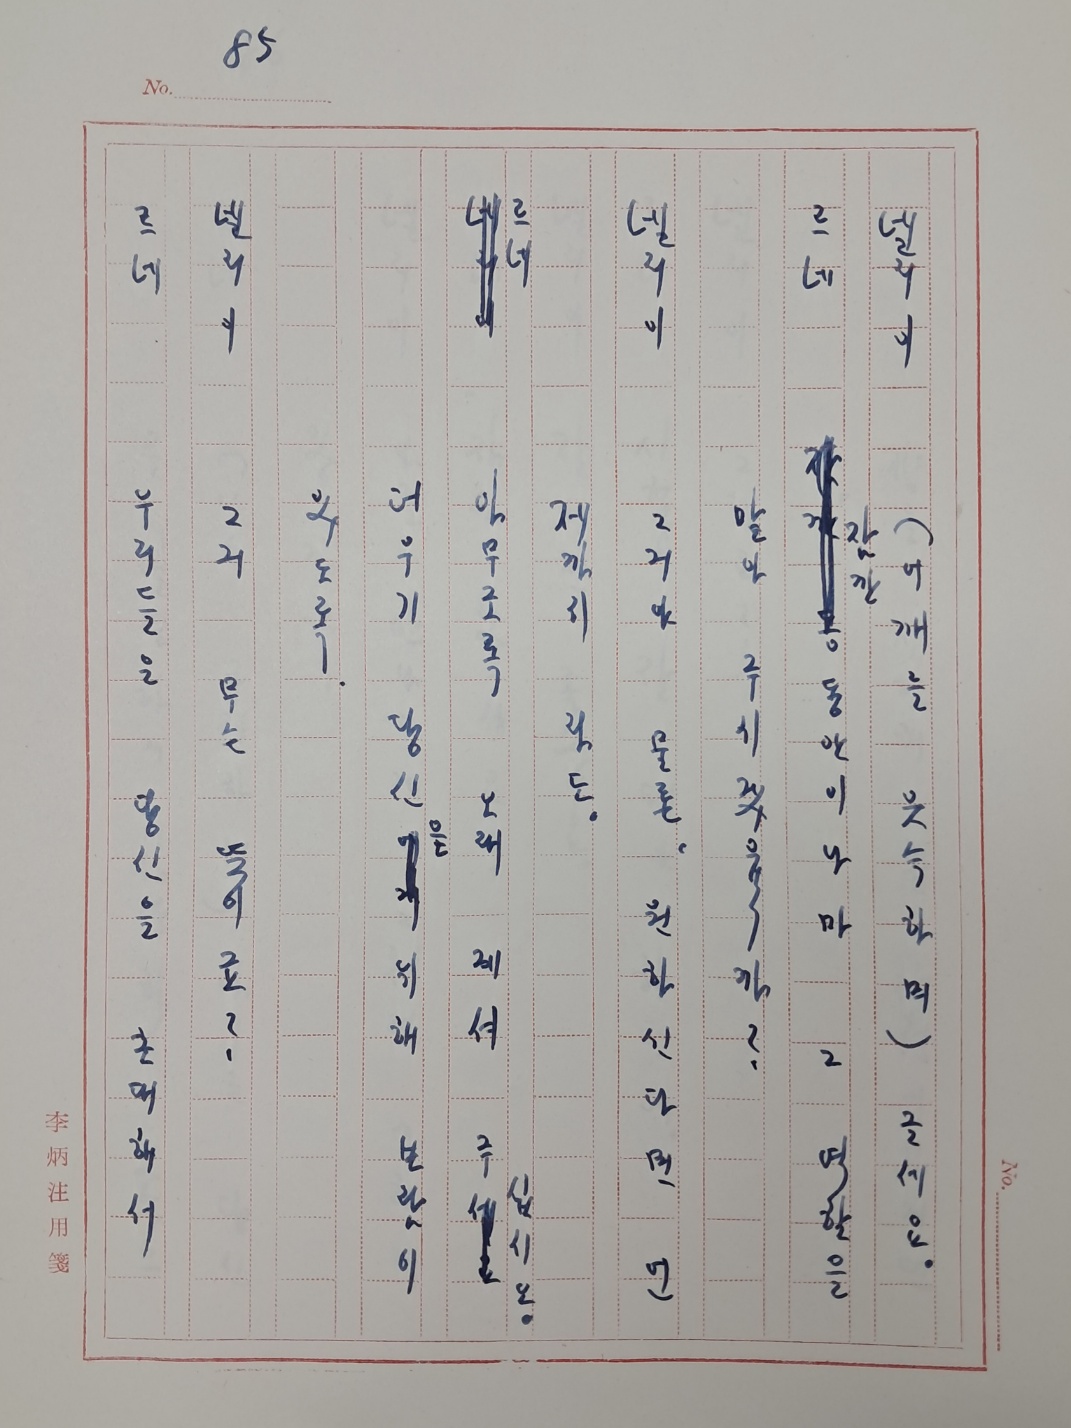 85
No.
넬리이 (어깨를 으쓱하며) 글세요.
르네 잠깐 동안이나마 그 역할을
맡아 주시겠을~까?
넬리이 물론, 원하신다면 언
제까지라도.
르네 아무쪼록 오래 계셔 주십시오.
더우기 당신은 위해 보람이
있도록ㅡ.
넬리이 무슨 뜻이죠?
르네 우리들은 당신을 존경해서
李炳注用箋
No.